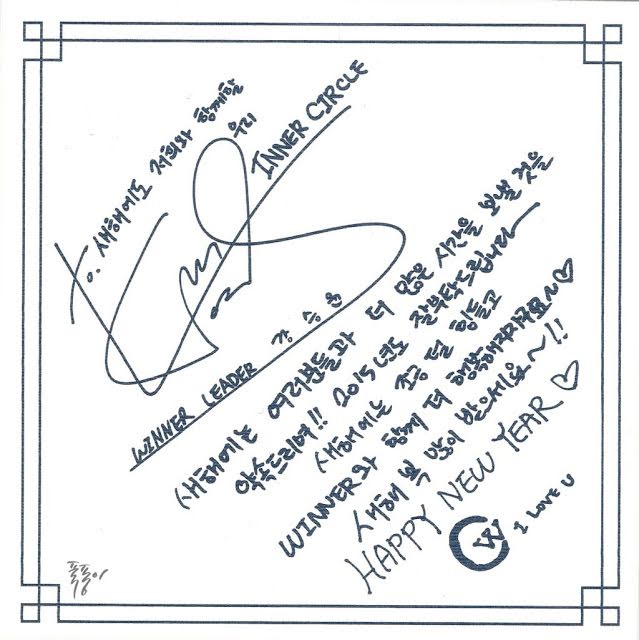 To. 새해에도 저희와 함께할
우리
INNER CIRCLE
WINNER LEADER 강승윤
새해에는 여러분들과 더 많은 시간을 보낼 것을
약속드리며!! 2015년도 잘 부탁드립니다
새해에는 조금 덜 힘들고
WINNER와 함께 더 행복해지자구요~♡
새해 복 많이 받으세요~!!
HAPPY NEW YEAR ♡
W I LOVE U
폭풍이